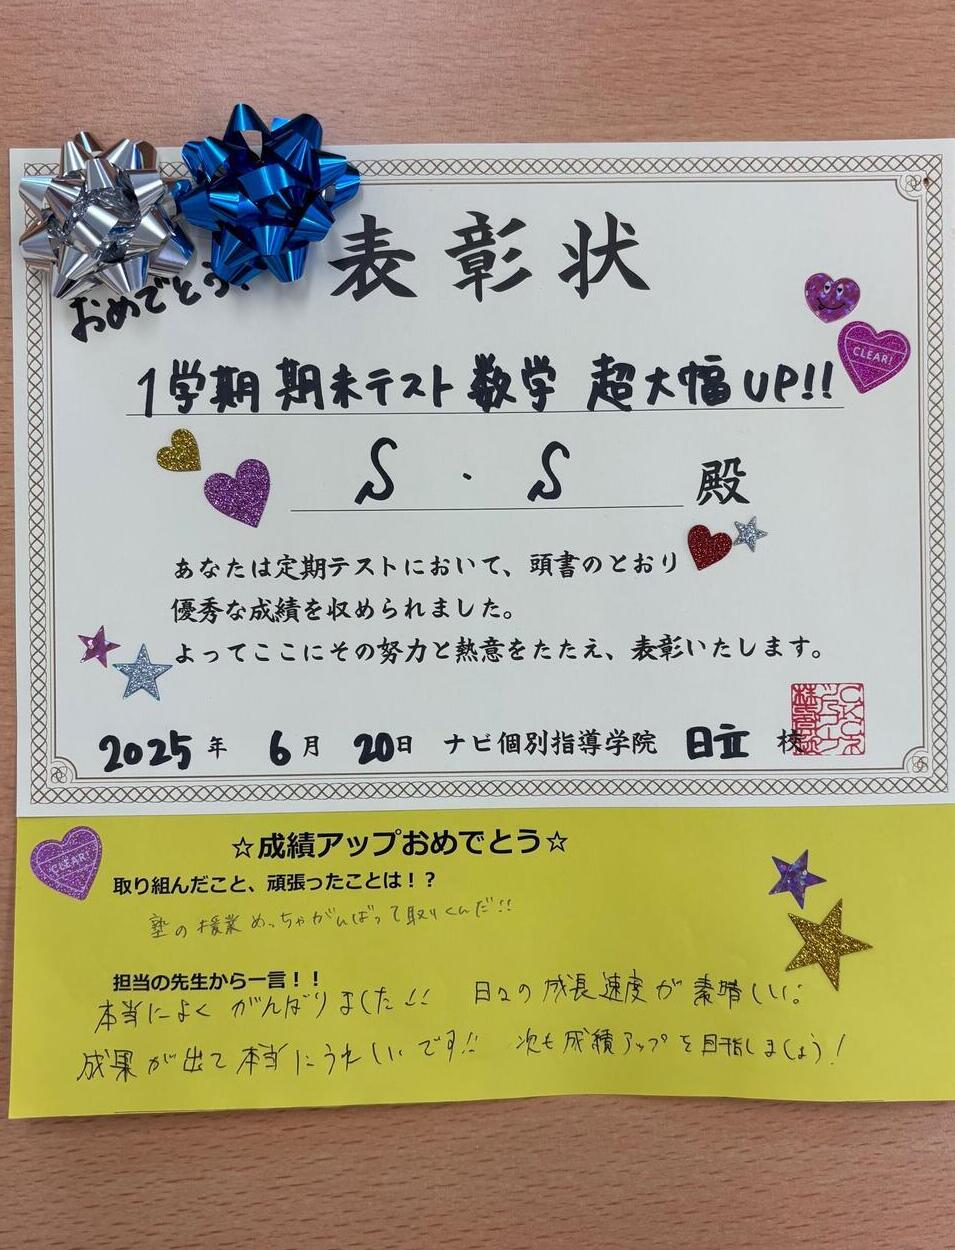 表彰状
おめでとう!
1学期 期末テスト 数学 超大幅UP!!
S・S 殿
あなたは定期テストにおいて、頭書のとおり
優秀な成績を収められました。
よってここにその努力と熱意をたたえ、表彰いたします。
2025年 6月 20日 ナビ個別指導学院 日立 校
CLEAR!
CLEAR!
☆成績アップおめでとう☆
取り組んだこと、頑張ったことは！？
塾の授業めっちゃがんばって取りくんだ!!
担当の先生から一言！！
本当によくがんばりました!! 日々の成長速度が素晴しい。
成果が出て本当にうれしいです!! 次も成績アップを目指しましょう!